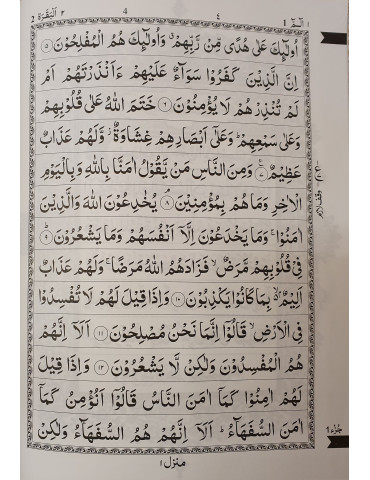 الٓمّٓ ١
4
٤
٢ اَلْبَقَرَة 2
اُولٰٓئِكَ عَلٰى هُدًى مِّنْ رَّبِّهِمْ ۗ وَاُولٰٓئِكَ هُمُ الْمُفْلِحُوْنَ ۝٥
اِنَّ الَّذِيْنَ كَفَرُوْا سَوَآءٌ عَلَيْهِمْ ءَاَنْذَرْتَهُمْ اَمْ
لَمْ تُنْذِرْهُمْ لَا يُؤْمِنُوْنَ ۝٦ خَتَمَ اللّٰهُ عَلٰى قُلُوْبِهِمْ
وَعَلٰى سَمْعِهِمْ ؕ وَعَلٰٓى اَبْصَارِهِمْ غِشَاوَةٌ ؗ وَّلَهُمْ عَذَابٌ
عَظِيْمٌ ۝٧ وَمِنَ النَّاسِ مَنْ يَّقُوْلُ اٰمَنَّا بِاللّٰهِ وَبِالْيَوْمِ
الْاٰخِرِ وَمَا هُمْ بِمُؤْمِنِيْنَ ۝٨ يُخٰدِعُوْنَ اللّٰهَ وَالَّذِيْنَ
اٰمَنُوْا ۚ وَمَا يَخْدَعُوْنَ اِلَّآ اَنْفُسَهُمْ وَمَا يَشْعُرُوْنَ ۝٩
فِيْ قُلُوْبِهِمْ مَّرَضٌ ۙ فَزَادَهُمُ اللّٰهُ مَرَضًا ۚ وَلَهُمْ عَذَابٌ
اَلِيْمٌ ۢ ۙ بِمَا كَانُوْا يَكْذِبُوْنَ ۝١٠ وَاِذَا قِيْلَ لَهُمْ لَا تُفْسِدُوْا
فِي الْاَرْضِ ۙ قَالُوْٓا اِنَّمَا نَحْنُ مُصْلِحُوْنَ ۝١١ اَلَآ اِنَّهُمْ
هُمُ الْمُفْسِدُوْنَ وَلٰكِنْ لَّا يَشْعُرُوْنَ ۝١٢ وَاِذَا قِيْلَ
لَهُمْ اٰمِنُوْا كَمَآ اٰمَنَ النَّاسُ قَالُوْٓا اَنُؤْمِنُ كَمَآ
اٰمَنَ السُّفَهَآءُ ؕ اَلَآ اِنَّهُمْ هُمُ السُّفَهَآءُ وَلٰكِنْ
منزل ١